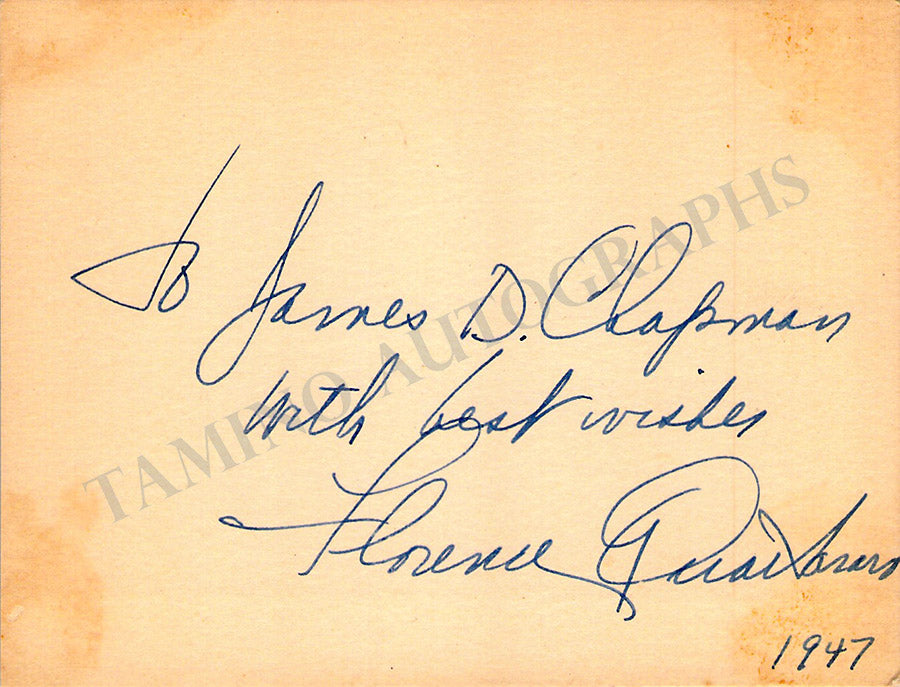 To James D. Chapman
With best wishes
Florence Quartararo
1947
TAMINO AUTOGRAPHS